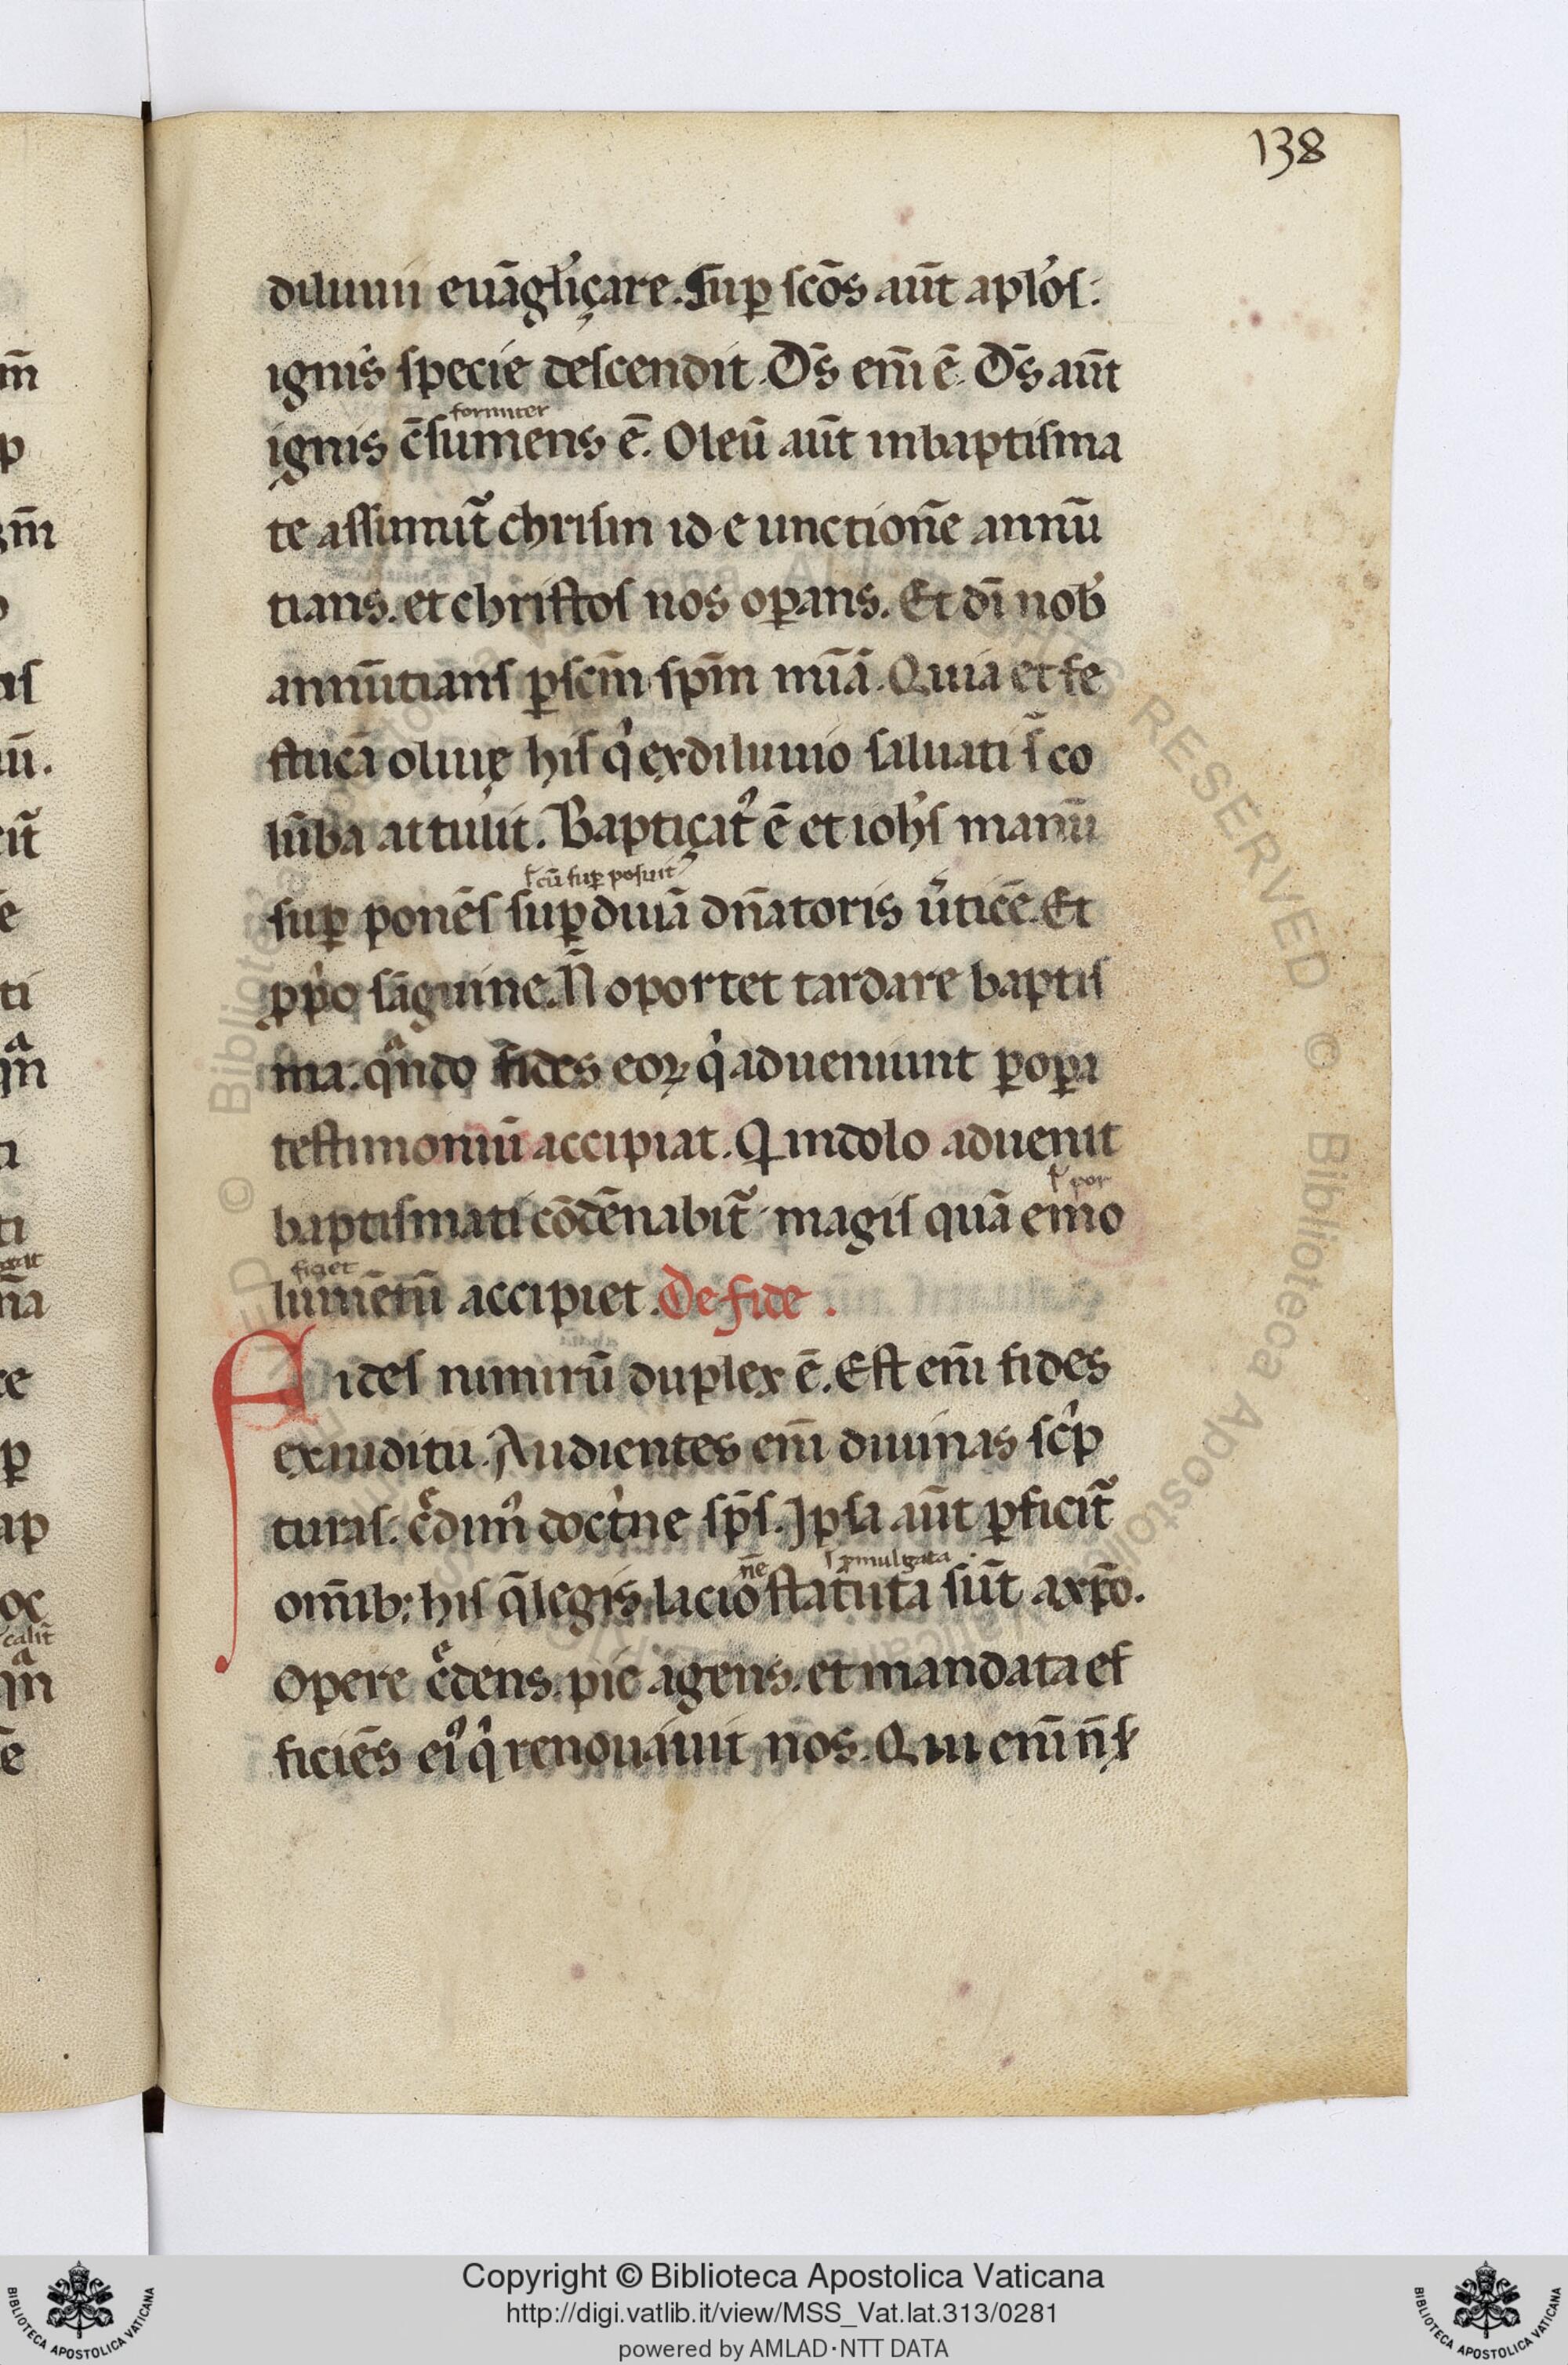 138
diluuii euāgl̓içare. Sup̱ sc̄os aūt apl̓os:
ignis specie descendit. D̄s eni̅ ē. D̄s aūt
ignis c̄sumens ē. Oleū aūt inbaptisma
te assumit̃ chrisin id e unctionē annū
tians. et christos nos op̱ans. Et dī nob̓
annūtians p̱ sc̄m sp̄m mīā. Quia et fe
stucā oliuę his q̓ ex diluuio saluati s̄ co
lūba attulit. Baptiçat᷒ ē et ioh̓s manū
sꝉ cū sup̱ posuit
sup̱ ponēs sup̱ diuiā dn̄atoris u̓ticē. Et
pp̓o sāguine. N̄ oportet tardare baptis
ma. qᵃndo fides eoꝝ q̓ adueniunt p̱ op̱a
testimoniū accipiat. Q̱ indolo aduenit
baptismati cōdēnabit̃ magis quā emo
figet
lumētū accipiet. De fide.
Fides nimirū duplex ē. Est eni̅ fides
exauditu. Audientes eni̅ diuinas sc̓p
turas. c̉dim᷒ doct̓ne sp̄s. Ipsa aūt p̱ficit̃
n̄e ꝓmulgata
om̄ib; his q̄ legis lacio statuta sūt axp̄o.
Opere c̉dens. pie agens. et mandata ef
ficiēs ei᷒ q̓ renouauit nos. Qui eni̅ n̄ s̵
Copyright © Biblioteca Apostolica Vaticana
http://digi.vatlib.it/view/MSS_Vat.lat.313/0281
powered by AMLAD·NTT DATA